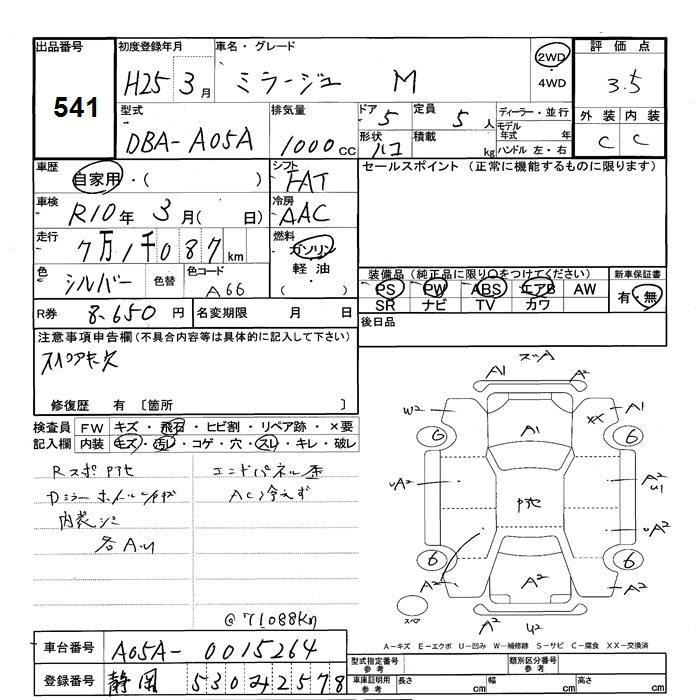 出品番号
541
初度登録年月
H25 3月
車名・グレード
ミラージュ M
2WD
4WD
評価点
3.5
型式
DBA-A05A
排気量
1000cc
ドア
5
定員
5人
形状
積載
kg
ディーラー・並行
モデル年式 年
ハンドル 左・右
外装 内装
C C
車歴
自家用・( )
シフト
FAT
セールスポイント (正常に機能するものに限ります)
車検
R10年 3月( 日)
冷房
AAC
走行
7万1千087km
燃料
ガソリン
軽油
( )
色
シルバー
色替
色コード
A66
装備品(純正品に限り○をつけてください)
PS PW ABS エアB AW
SR ナビ TV カワ
新車保証書
有・無
R券 8,650円
名変期限 月 日
後日品
注意事項申告欄(不具合内容等は具体的に記入して下さい)
スペアキー欠
修復歴 有 〔箇所 〕
検査員記入欄
FW キズ・飛石・ヒビ割・リペア跡・×要
内装 キズ・汚レ・コゲ・穴・スレ・キレ・破レ
Rスポ
Dミラー
内装シミ
各A.U
エンドパネル歪
AC冷えず
@71088Km
スッA
A1 A2
W2 XX A1
6 A1 6
A2 A2
U1
A2
6 6
A2 A2 A2
スペア
A2 U2
A-キズ E-エクボ U-凹み W-補修跡 S-サビ C-腐食 XX-交換済
車台番号
A05A-0015264
登録番号
静岡 530 み 2578
型式指定番号
参考
類別区分番号
参考
車庫証明用
参考
長さ cm
幅 cm
高さ cm